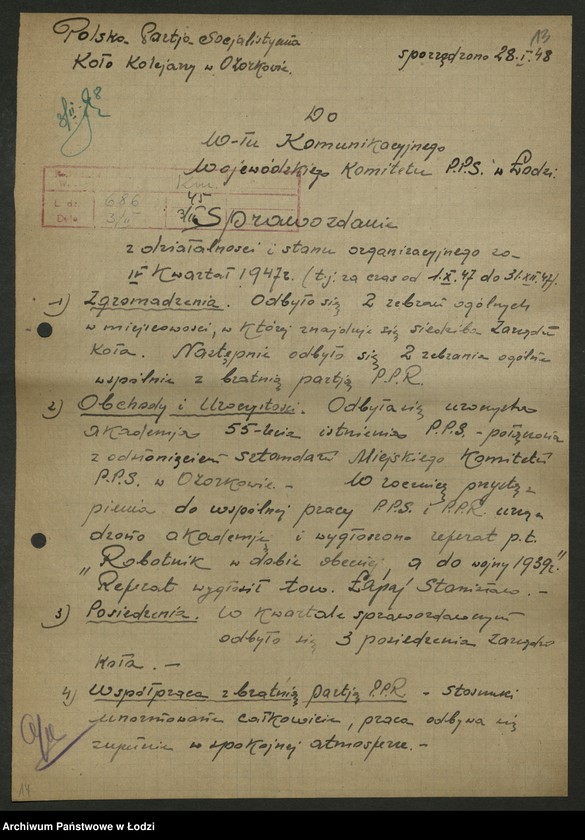 Polska Partja Socjalistyczna
13
Koło Kolejowy w Ozorkowie.
sporządzono 28.I.48
Do
W-łu Komunikacyjnego
Wojewódzkiego Komitetu P.P.S. w Łodzi
L. dz. 686
Data 3/II
45
3/II
Sprawozdanie
z działalności i stanu organizacyjnego za
IV Kwartał 1947r. (t.j. za czas od 1.X.47 do 31.XII.47).
1) Zgromadzenia. Odbyło się 2 zebrań ogólnych
w miejscowości, w której znajduje się siedziba Zarządu
Koła. Następnie odbyło się 2 zebrania ogólne
wspólnie z bratnią partją P.P.R.
2) Obchody i Uroczystości. Odbyła się uroczysta
akademja 55-lecia istnienia P.P.S. - połączona
z odsłonięciem sztandaru Miejskiego Komitetu
P.P.S. w Ozorkowie. - W rocznicę przystą-
pienia do wspólnej pracy P.P.S. i P.P.R. urzą-
dzono akademję i wygłoszono referat p.t.
"Robotnik w dobie obecnej, a do wojny 1939r."
Referat wygłosił tow. Łapaj Stanisław. -
3) Posiedzenia. W Kwartale sprawozdawczym
odbyło się 3 posiedzenia Zarządu
Koła. -
4) Współpraca z bratnią partją P.P.R. - Stosunki
unormowane całkowicie, praca odbywa się
zupełnie w spokojnej atmosferze. -
a/a
14
Archiwum Państwowe w Łodzi